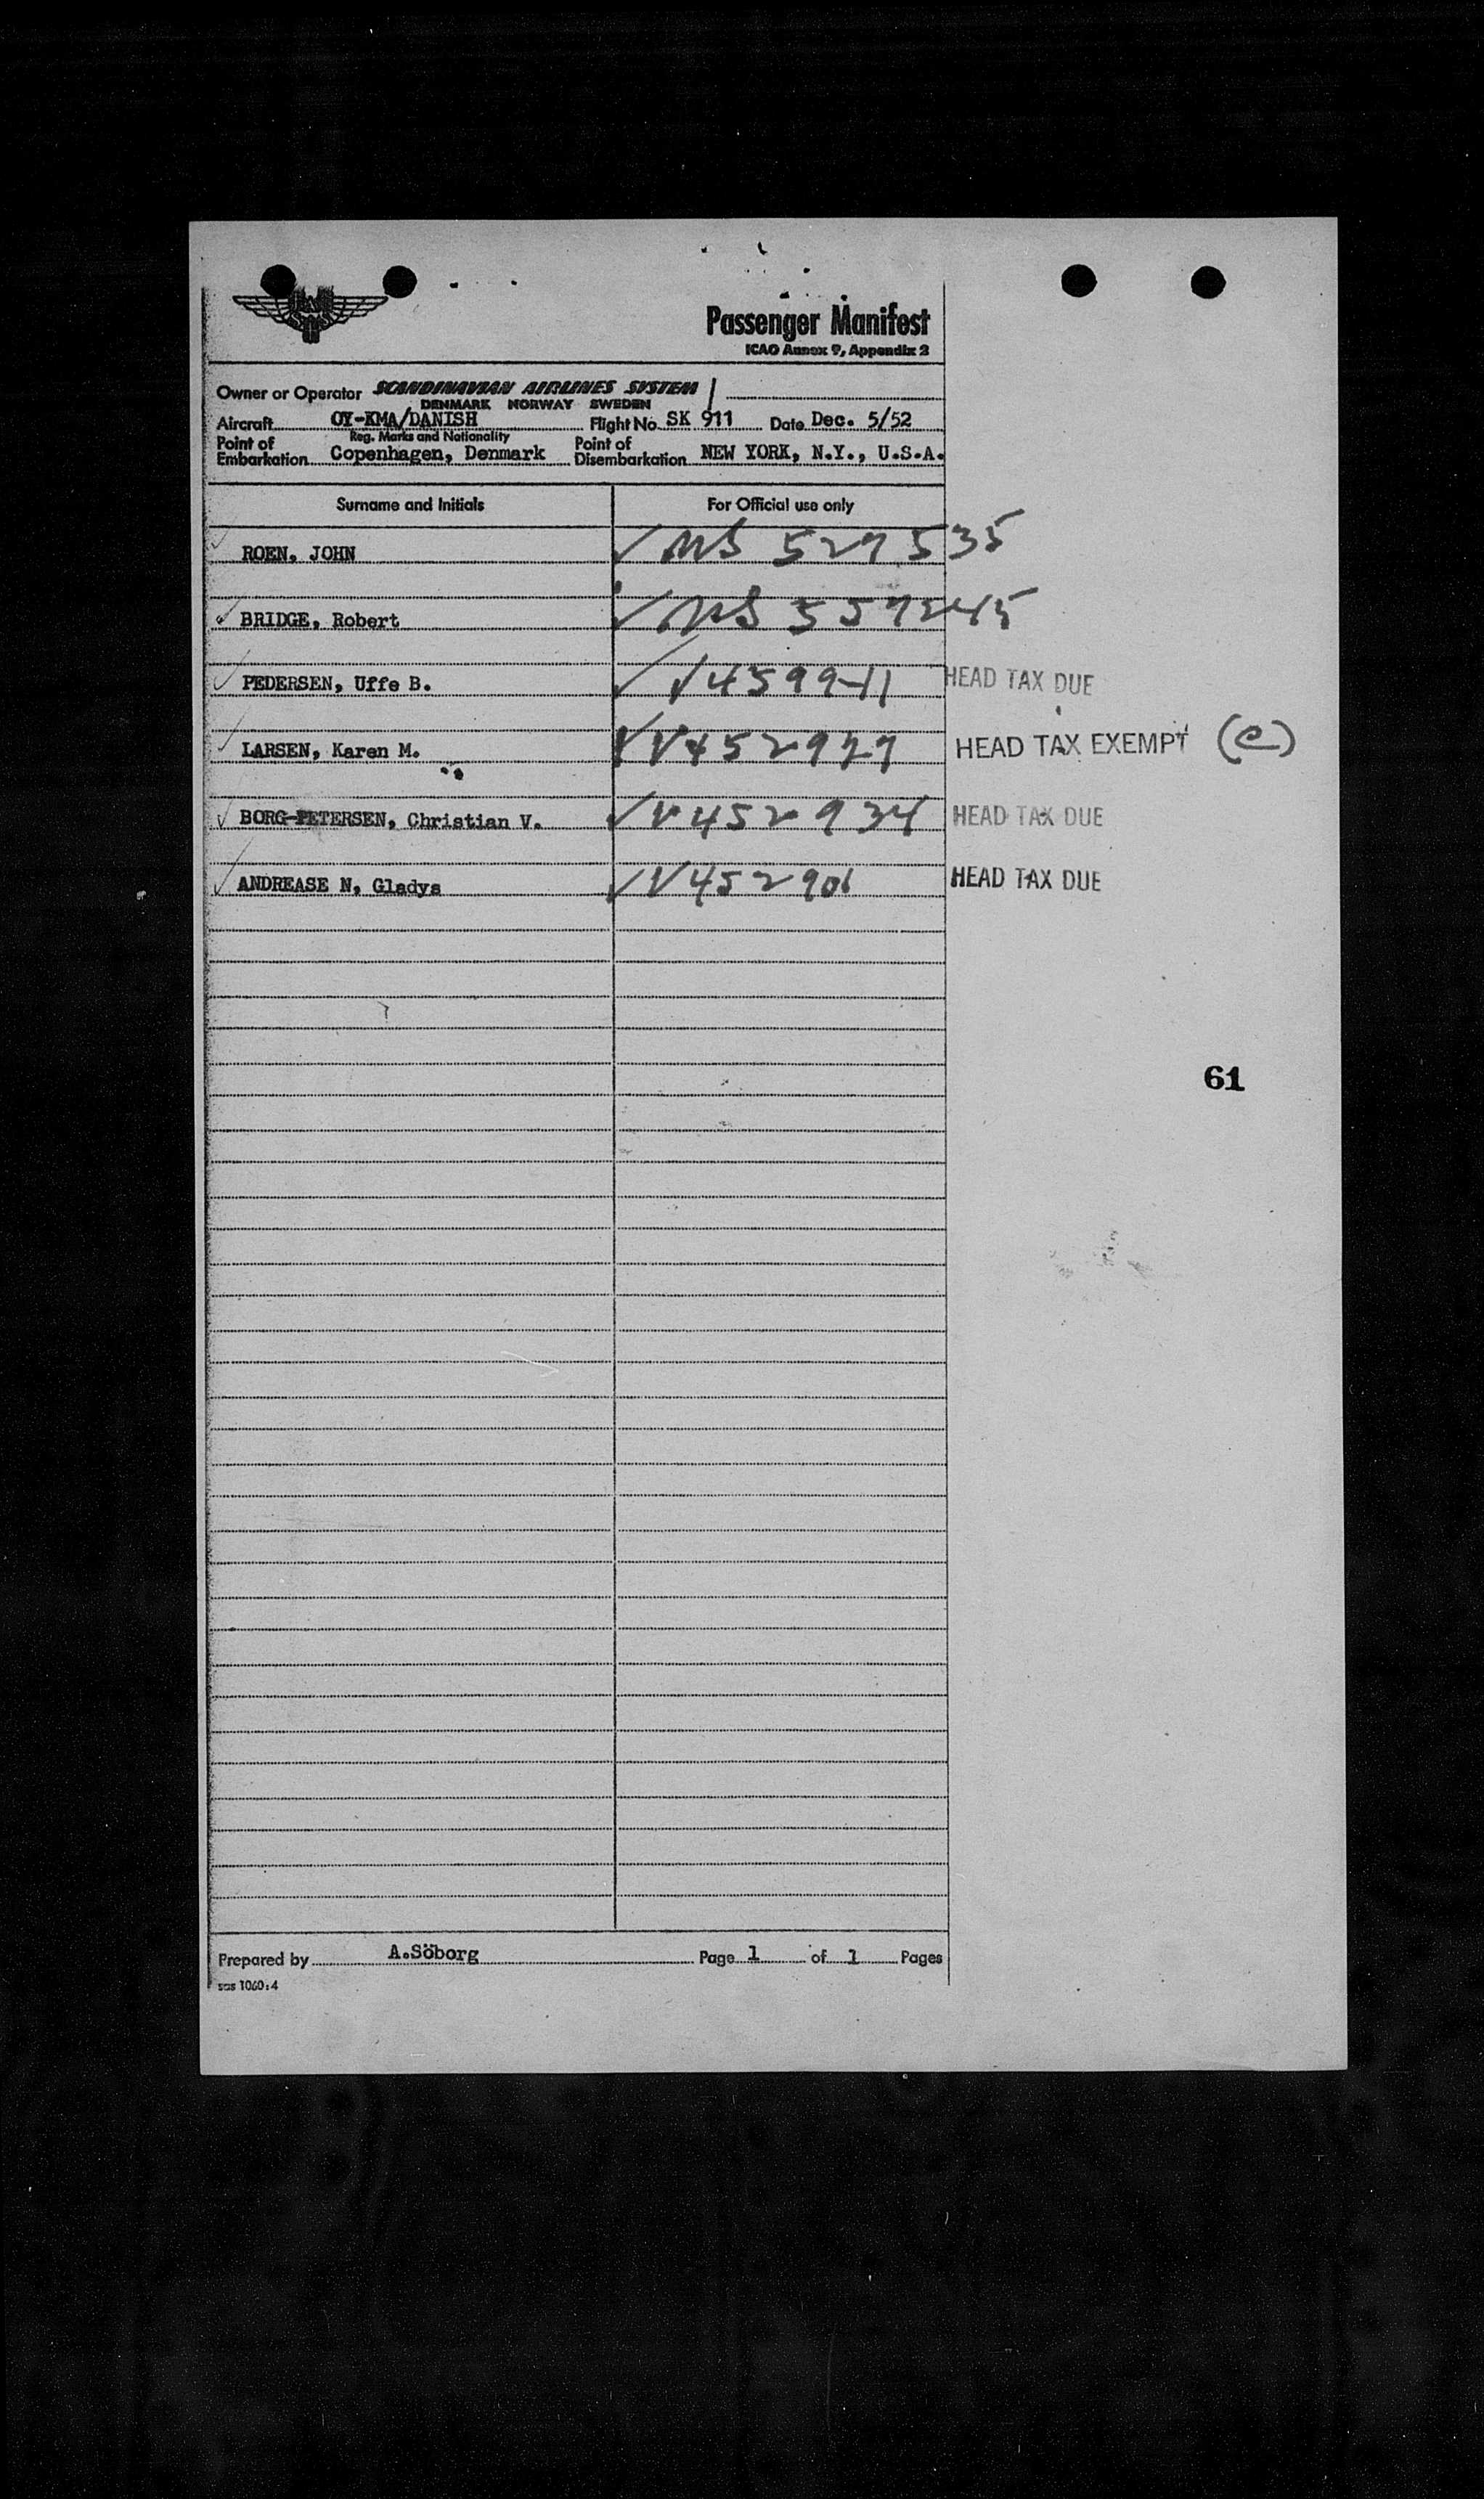 Passenger Manifest
ICAO Annex 9, Appendix 2
Owner or Operator SCANDINAVIAN AIRLINES SYSTEM
DENMARK NORWAY SWEDEN
Aircraft OY-KMA/DANISH Flight No. SK 911 Date Dec. 5/52
Reg. Marks and Nationality
Point of Embarkation Copenhagen, Denmark Point of Disembarkation NEW YORK, N.Y., U.S.A.
Surname and Initials For Official use only
ROEN, JOHN 527535
BRIDGE, Robert 557245
PEDERSEN, Uffe B. HEAD TAX DUE
LARSEN, Karen M. V452927 HEAD TAX EXEMPT (e)
BORG-PETERSEN, Christian V. V452934 HEAD TAX DUE
ANDREASE N, Gladys V452901 HEAD TAX DUE
61
Prepared by A.Söborg Page 1 of 1 Pages
sas 1060:4